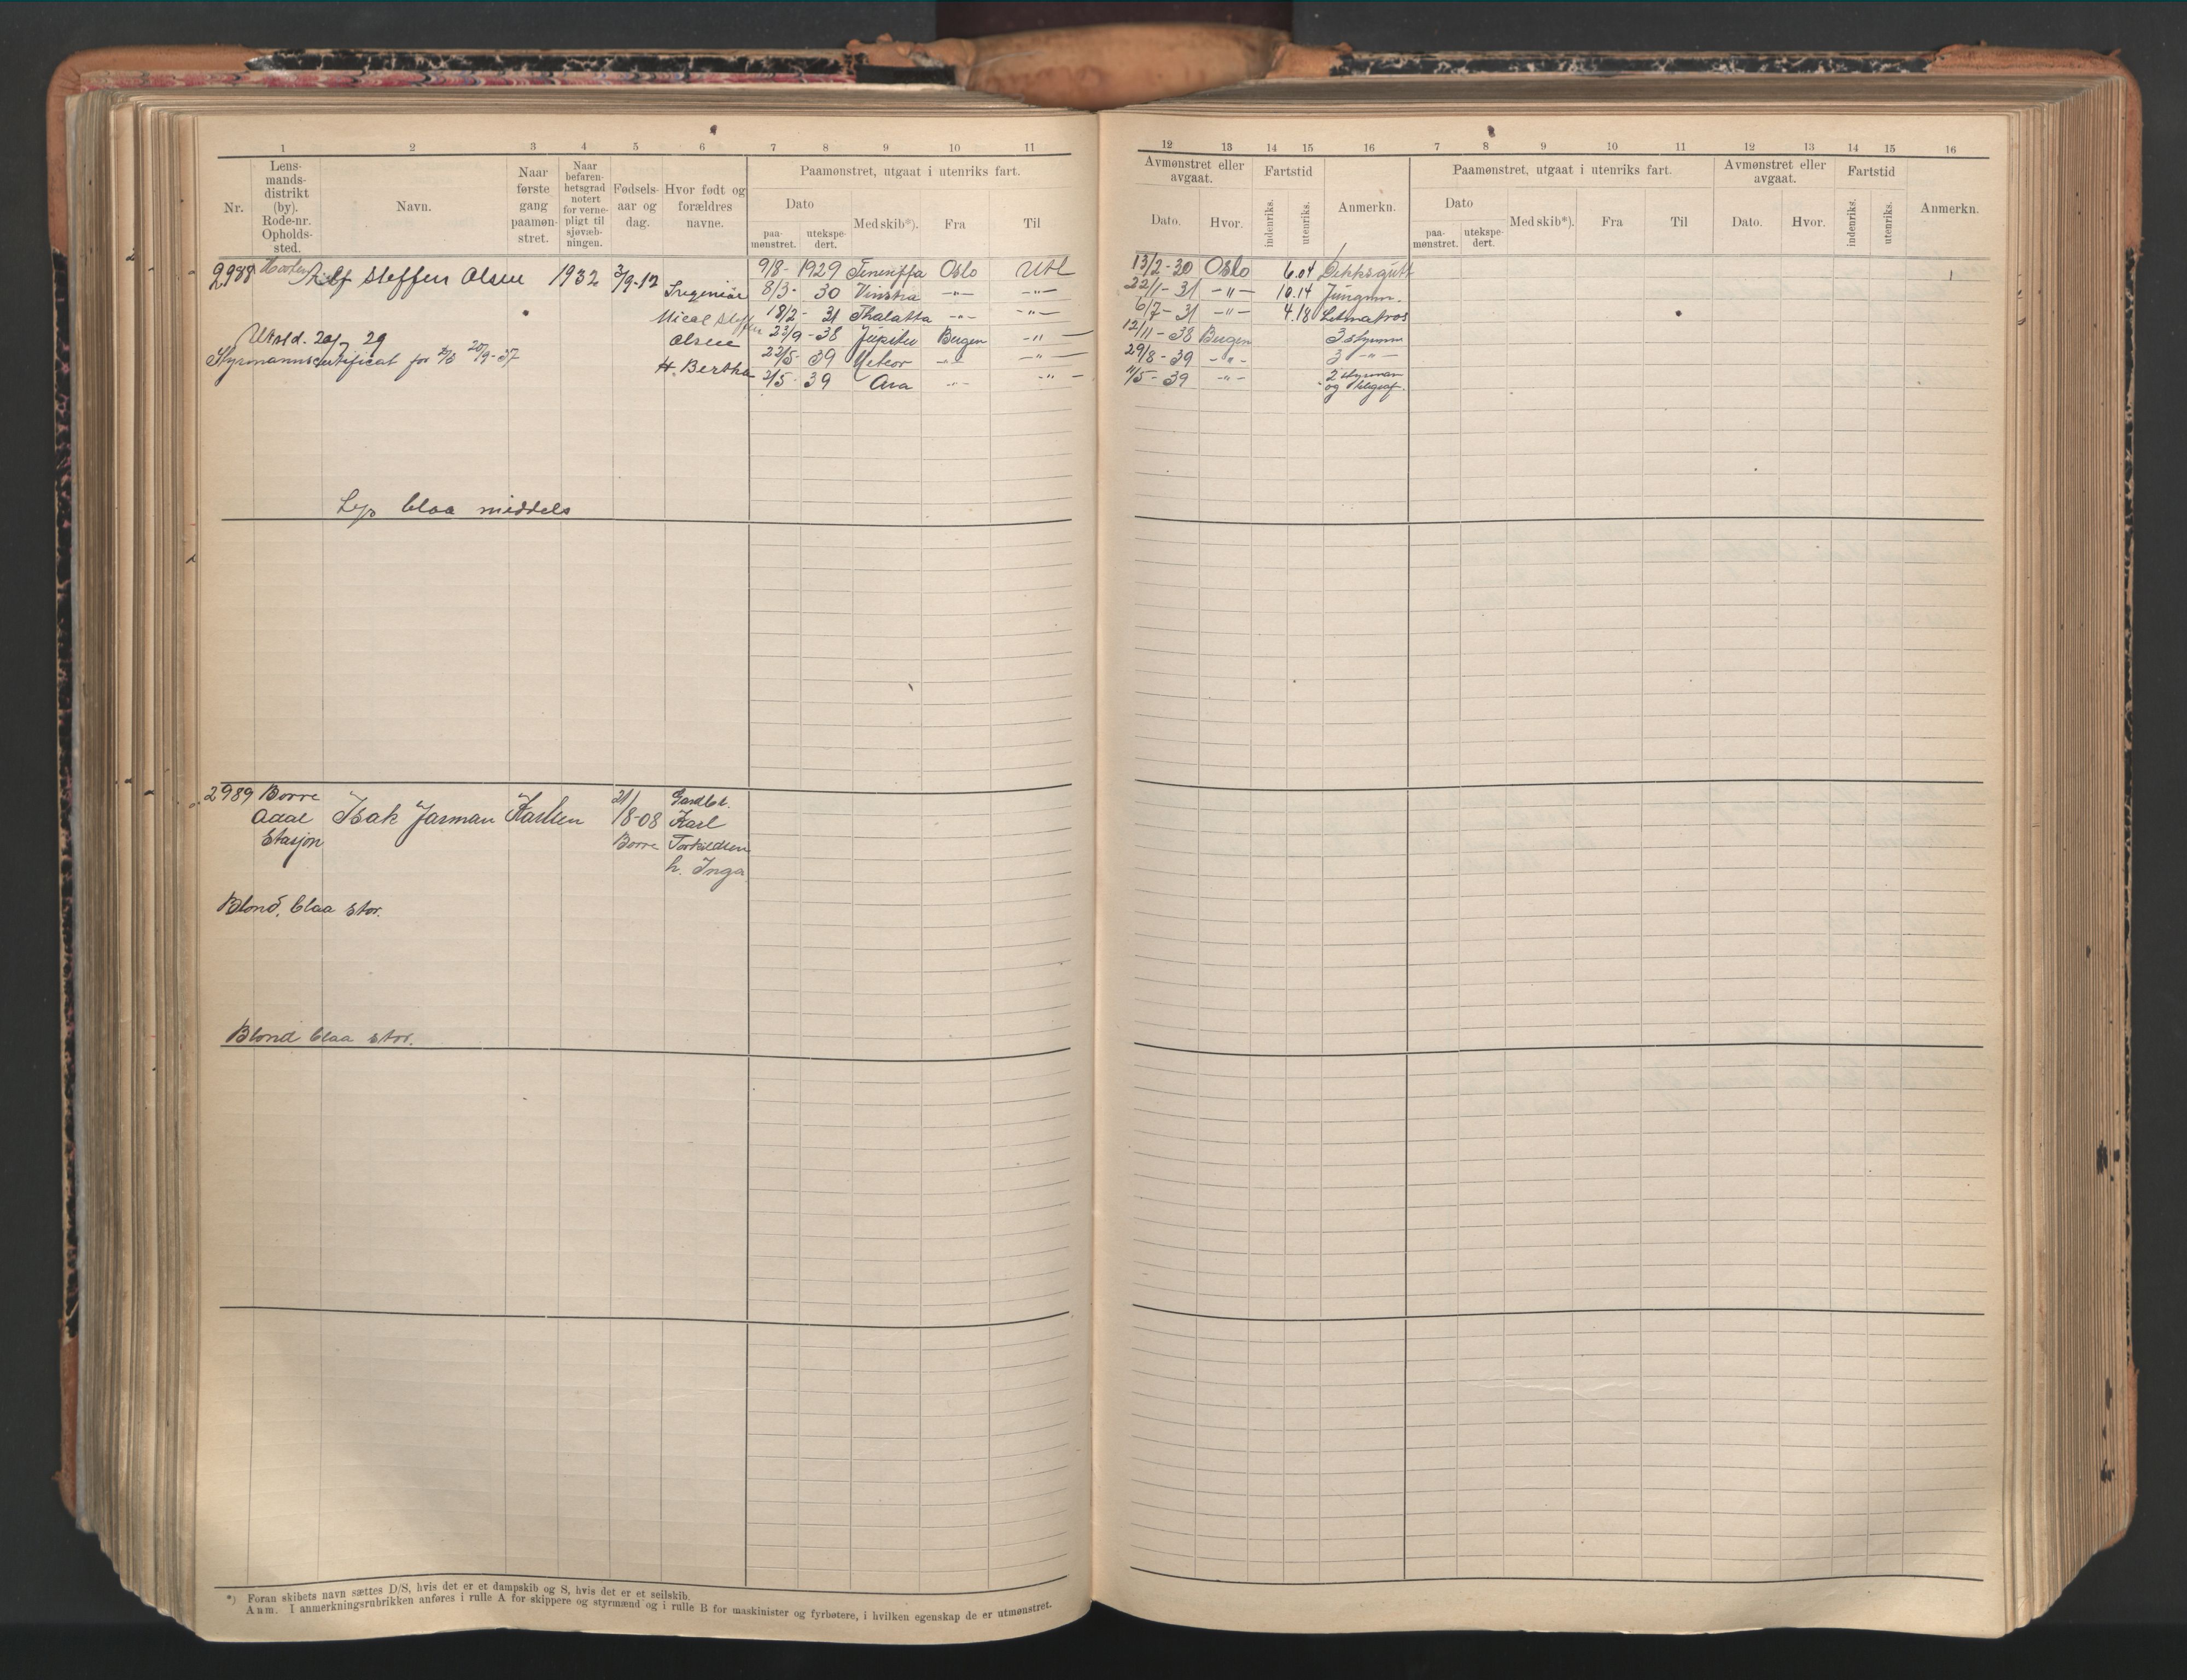 1 2 3 4 5 6 7 8 9 10 11
Nr.
Lens-
mands-
distrikt
(by).
Rode-nr.
Opholds-
sted.
Navn.
Naar
første
gang
paamøn-
stret.
Naar
befaren-
hetsgrad
notert
for verne-
pligt til
sjøvæb-
ningen.
Fødsels-
aar og
dag.
Hvor født og
forældres
navne.
Paamønstret, utgaat i utenriks fart.
Dato
paa-
mønstret.
utekspe-
dert.
Med skib*).
Fra
Til
2988 Steffen Olsen 1932 3/9-12
Ingeniør
Olsen
H. Bertha
Utst d. 20/7 29
Styrmannscertificat for 20/9-37
9/8- 1929 Teneriffa Oslo Utl
8/3- 30 Vinstra -"- -"-
18/2- 31 Thalatta -"- -"-
23/9-38 Jupiter Bergen -"-
22/5- 39 Meteor -"- -"-
2/5- 39 Ara -"- -"-
Lys blaa middels
2989 Borre Isak Jarman Karlsen 21/8-08
Adal
Stasjon
Borre
Gardbr.
Karl
Torkildsen
h. Inga
Blond, blaa stor.
Blond blaa stor.
*) Foran skibets navn sættes D/S, hvis det er et dampskib og S, hvis det er et seilskib.
Anm. I anmerkningsrubrikken anføres i rulle A for skippere og styrmænd og i rulle B for maskinister og fyrbøtere, i hvilken egenskap de er utmønstret.
12 13 14 15 16 7 8 9 10 11 12 13 14 15 16
Avmønstret eller
avgaat.
Dato.
Hvor.
Fartstid
indenriks.
utenriks.
Anmerkn.
Paamønstret, utgaat i utenriks fart.
Dato
paa-
mønstret.
utekspe-
dert.
Med skib*).
Fra
Til
Avmønstret eller
avgaat.
Dato.
Hvor.
Fartstid
indenriks.
utenriks.
Anmerkn.
13/2-30 Oslo 6.04 Dekksgutt
22/1-31 -"- 10.14 Jungm.
6/7-31 -"- 4.18 Letmatros
12/11-38 Bergen 3 styrm
29/8-39 -"- 3 -"-
11/5-39 -"- 2 styrman
og telegraf.